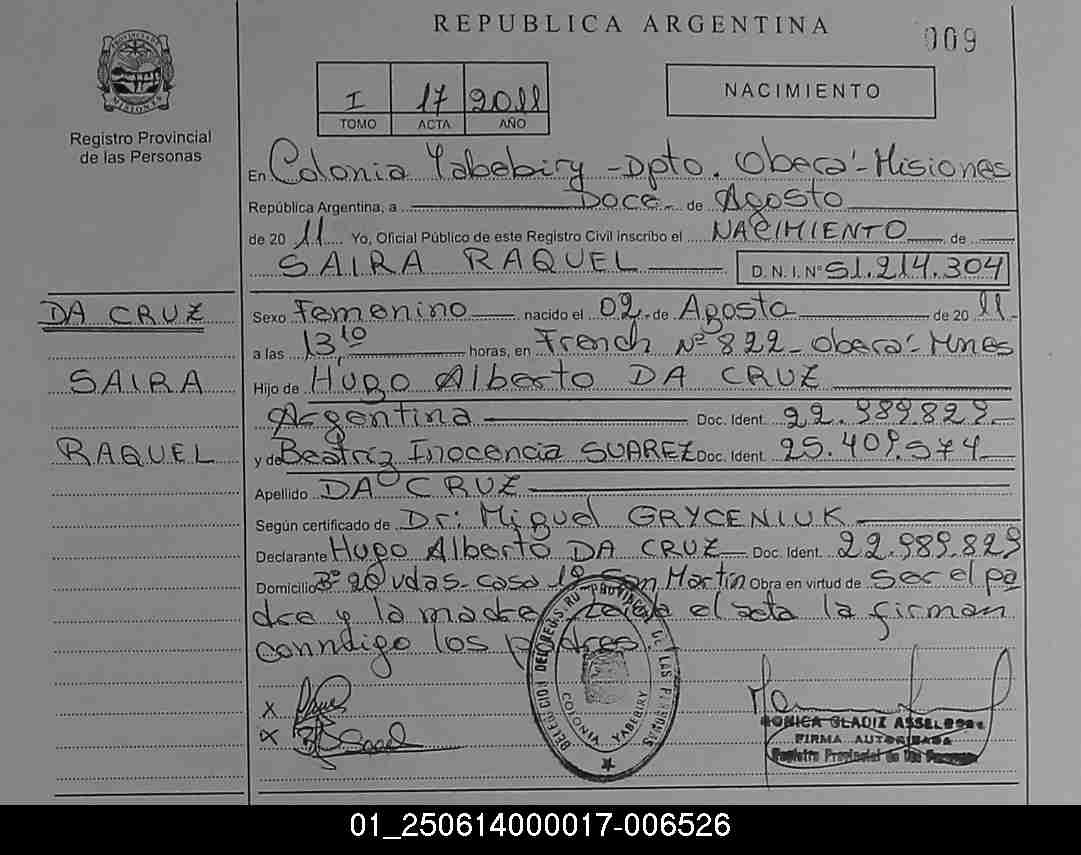 REPUBLICA ARGENTINA
009
PROVINCIA DE MISIONES
Registro Provincial
de las Personas
I 17 2011
TOMO ACTA AÑO
NACIMIENTO
En Colonia Yabebiry - Dpto. Oberá - Misiones
República Argentina, a Doce de Agosto
de 20 11 Yo, Oficial Público de este Registro Civil inscribo el NACIMIENTO de
SAIRA RAQUEL D.N.I. Nº 51.214.304
DA CRUZ
SAIRA
RAQUEL
Sexo Femenino nacido el 02 de Agosto de 20 11
a las 13,10 horas, en French Nº 822 - Oberá - Mnes
Hijo de Hugo Alberto DA CRUZ
Argentina Doc. Ident. 22.989.829
y de Beatriz Inocencia SUAREZ Doc. Ident. 25.409.574
Apellido DA CRUZ
Según certificado de Dr: Miguel GRYCENIUK
Declarante Hugo Alberto DA CRUZ Doc. Ident. 22.989.829
Domicilio Bº 20 vdas - casa 19 San Martin Obra en virtud de ser el pa
dre y la madre el acta la firman
conmigo los padres.
X
X
DELEGACION DEL REGISTRO PROVINCIAL DE LAS PERSONAS
COLONIA YABEBIRY
GLADIZ
FIRMA AUTORIZADA
Registro Provincial de las Personas
01_250614000017-006526